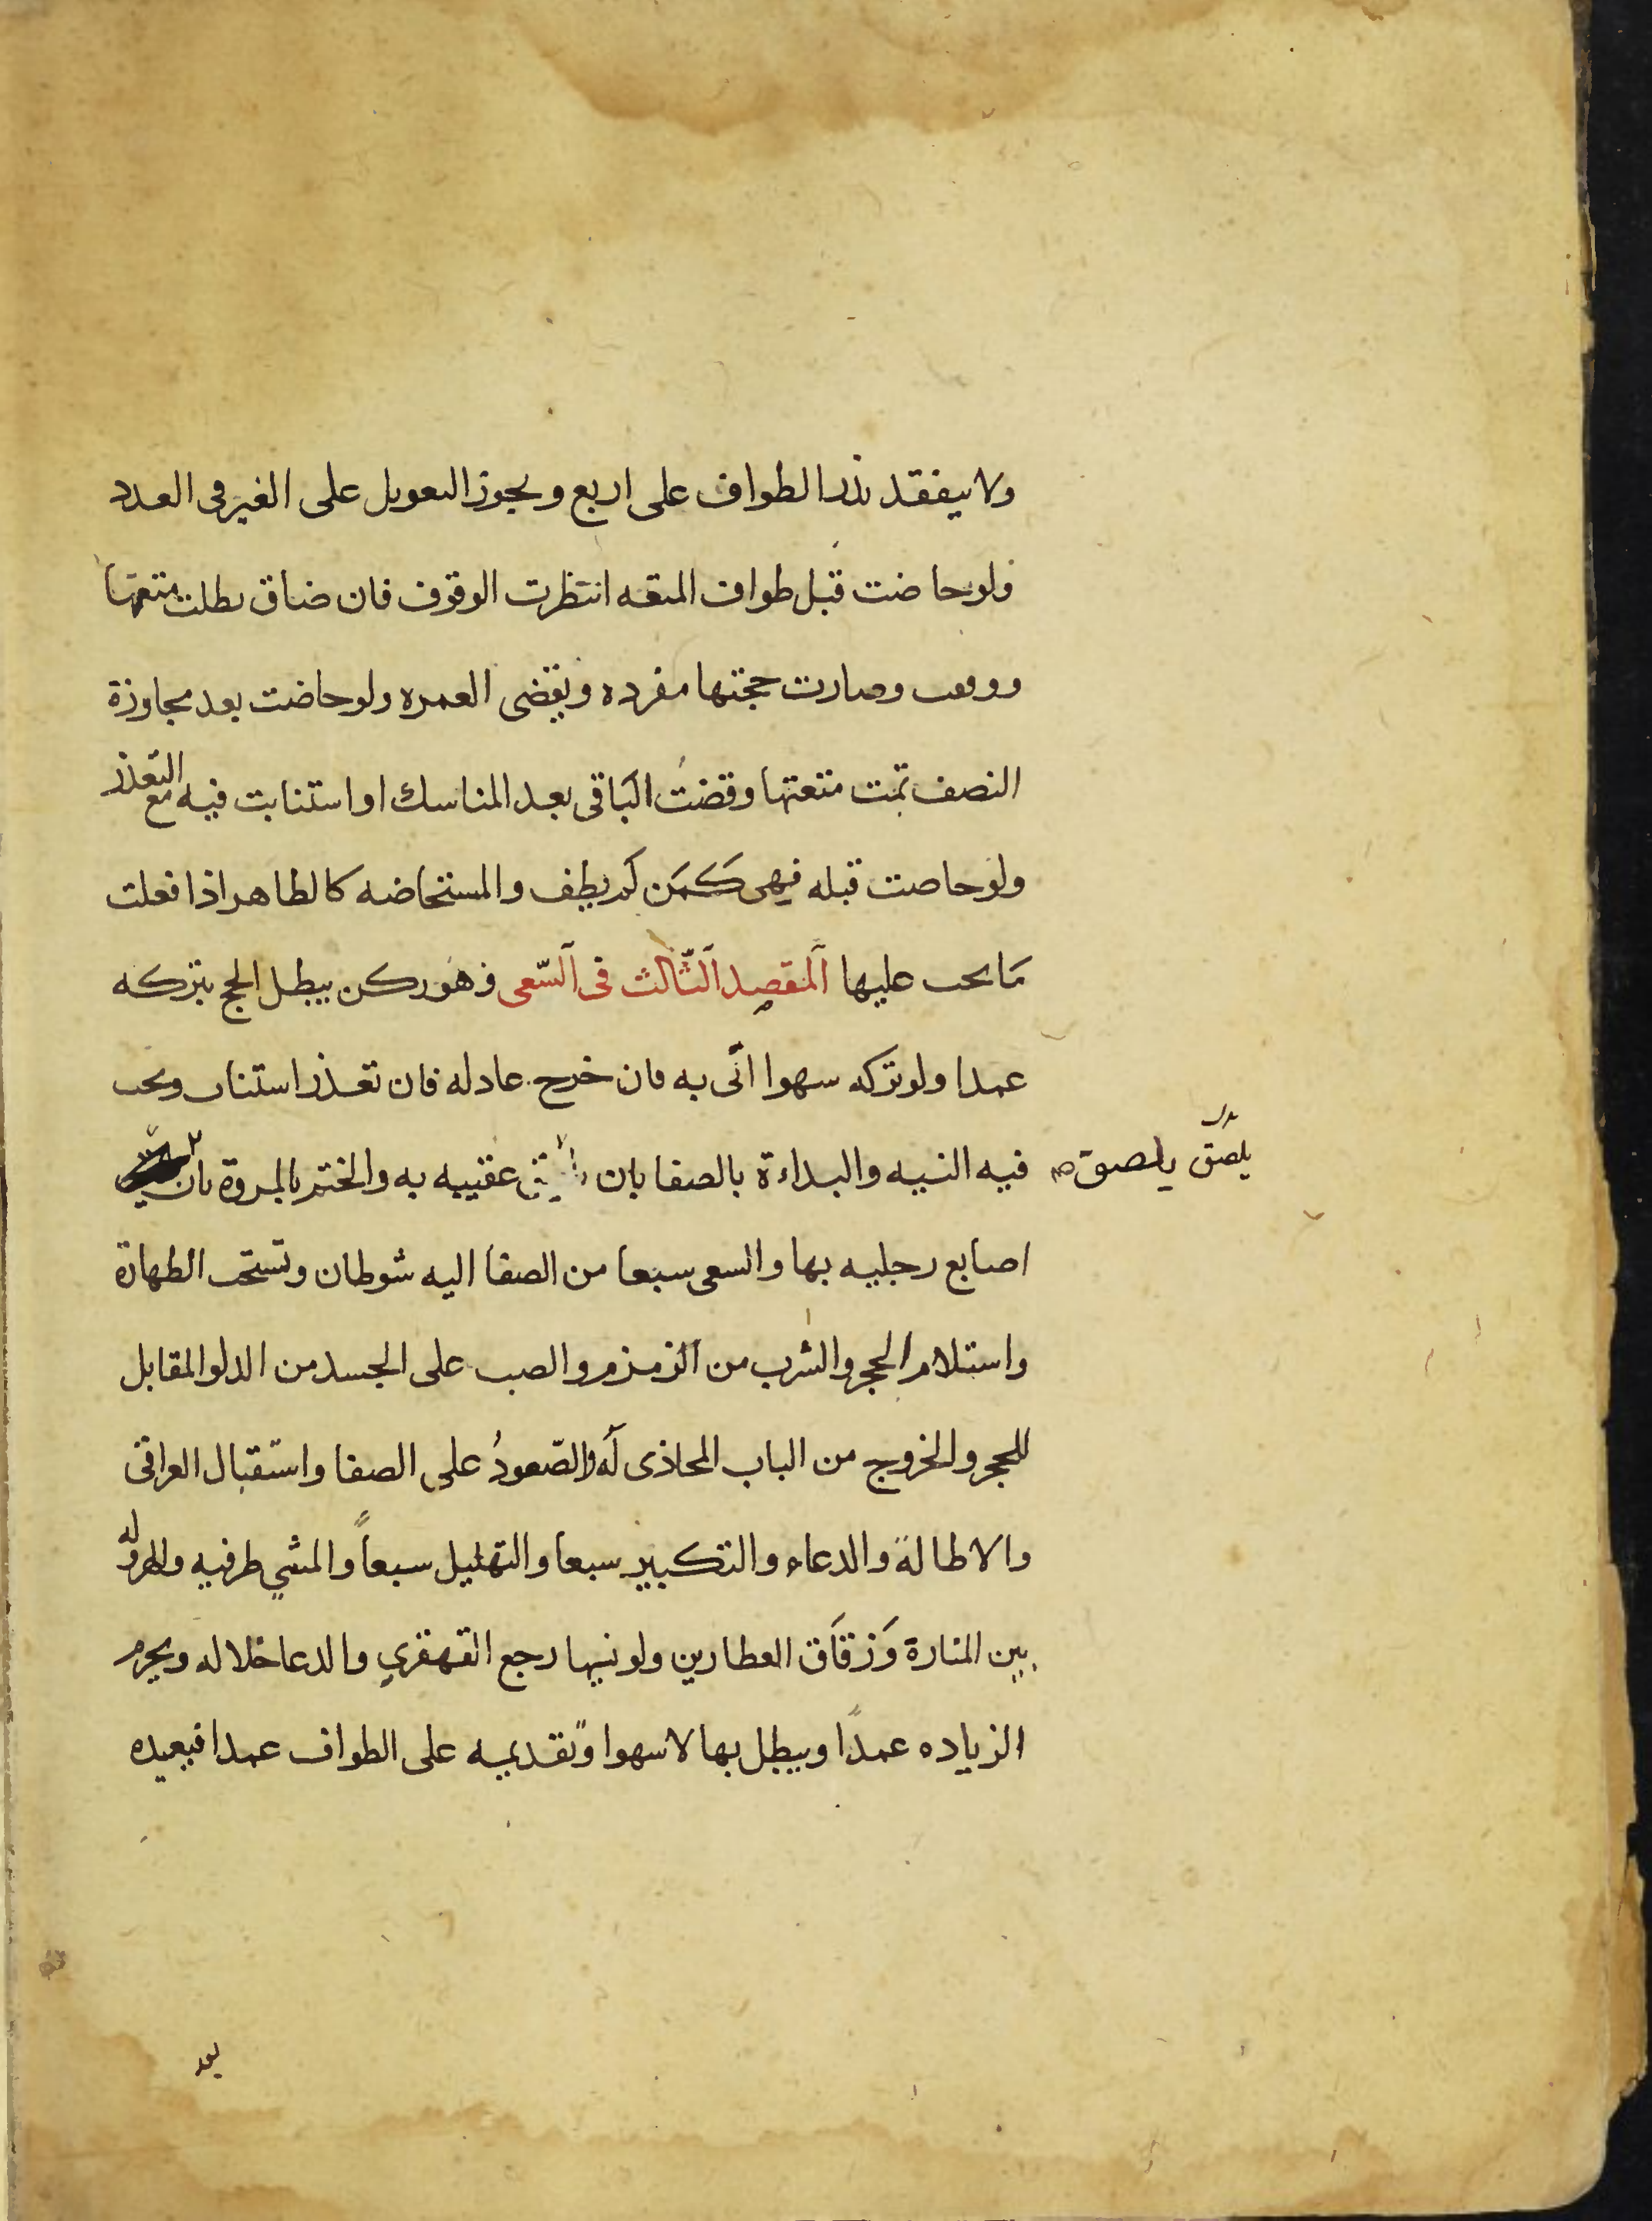 ولا ينفقد نذر الطواف على اربع ويجوز التعويل على الغير فى العدد
ولو حاضت قبل طواف المتعه انتظرت الوقوف فان ضاق بطلت متعتها
ووقفت وصارت حجتها مفرده وتقضى العمره ولو حاضت بعد مجاوزة
النصف تمت متعتها وقضت الباقى بعد المناسك او استنابت فيه مع التعذر
ولو حاصت قبله فهى كمَن لم يطف والمستحاضه كالطاهر اذا فعلت
مَا يجب عليها اَلمقصد اَلثّالث فى اَلسّعى وهو ركن يبطل الحج بتركه
عمدا ولو تركه سهوا اتى به فان خرج عاد له فان تعذر استناب ويجب
فيه النيه والبداءة بالصفا بان عقبيه به والختم بالمروة بان
يلصق يلصق
اصابع رجليه بها والسعى سبعا من الصفا اليه شوطان وتستحب الطهارة
واستلام الحجر والشرب من الزمزم والصب على الجسد من الدلو المقابل
للحجر والخروج من الباب المحاذى لَه والصّعودُ على الصفا واستقبال العراقى
والاطالة والدعاء والتكبير سبعا والتهليل سبعاً والمشي طرفيه والهرولة
بين المنارة وَزقَاق العطارين ولو نسيها رجع القهقري والدعا خلاله ويحرم
الزياده عمدًا ويبطل بها لا سهوا وتقديمه على الطواف عمدا فيعيده